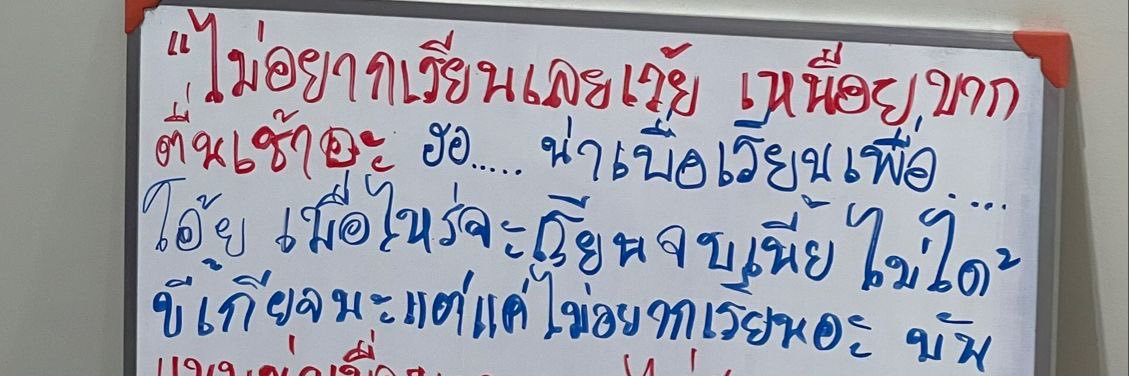 "ไม่อยากเรียนเลยเว้ย เหนื่อย มาก
ตื่นเช้าอะ ฮือ..... น่าเบื่อเรียนเพื่อ.....
โอ้ย เมื่อไหร่จะเรียนจบเนี้ย ไม่ได้
ขี้เกียจนะแต่แค่ไม่อยากเรียนอะ มัน